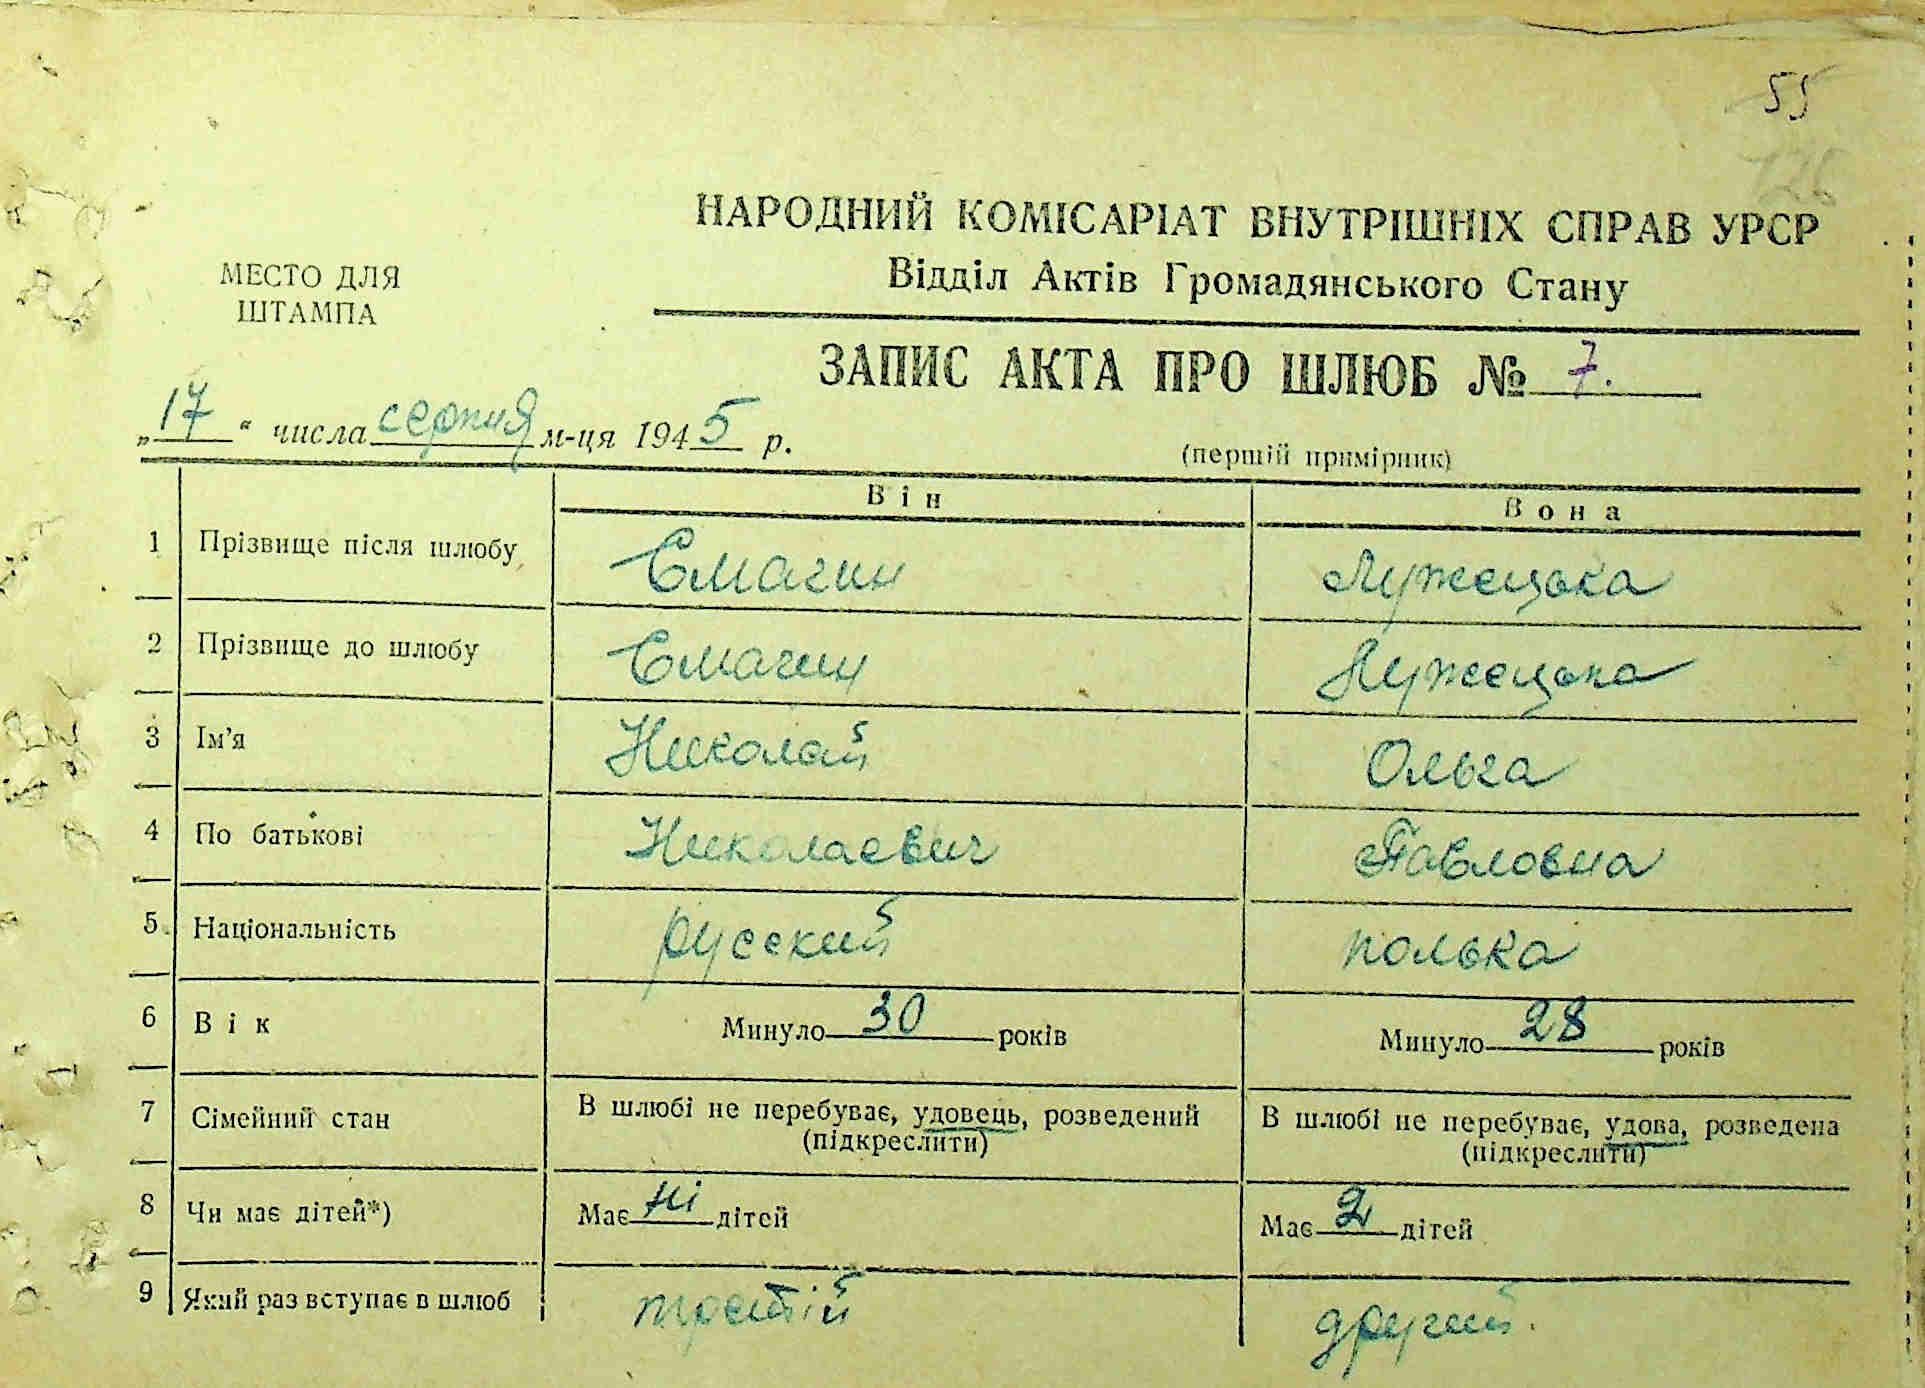 55
126
НАРОДНИЙ КОМІСАРІАТ ВНУТРІШНІХ СПРАВ УРСР
Відділ Актів Громадянського Стану
МЕСТО ДЛЯ
ШТАМПА
ЗАПИС АКТА ПРО ШЛЮБ № 7.
„17“ числа серпня м-ця 1945 р.
(першій примірник)
Він Вона
1 Прізвище після шлюбу Емагин Лужецька
2 Прізвище до шлюбу Емагин Лужецька
3 Ім'я Николай Ольга
4 По батькові Николаевич Павловна
5 Національність русский полька
6 Вік Минуло 30 років Минуло 28 років
7 Сімейний стан В шлюбі не перебуває, удовець, розведений В шлюбі не перебуває, удова, розведена
(підкреслити) (підкреслити)
8 Чи має дітей*) Має ні дітей Має 2 дітей
9 Який раз вступає в шлюб третій другий.